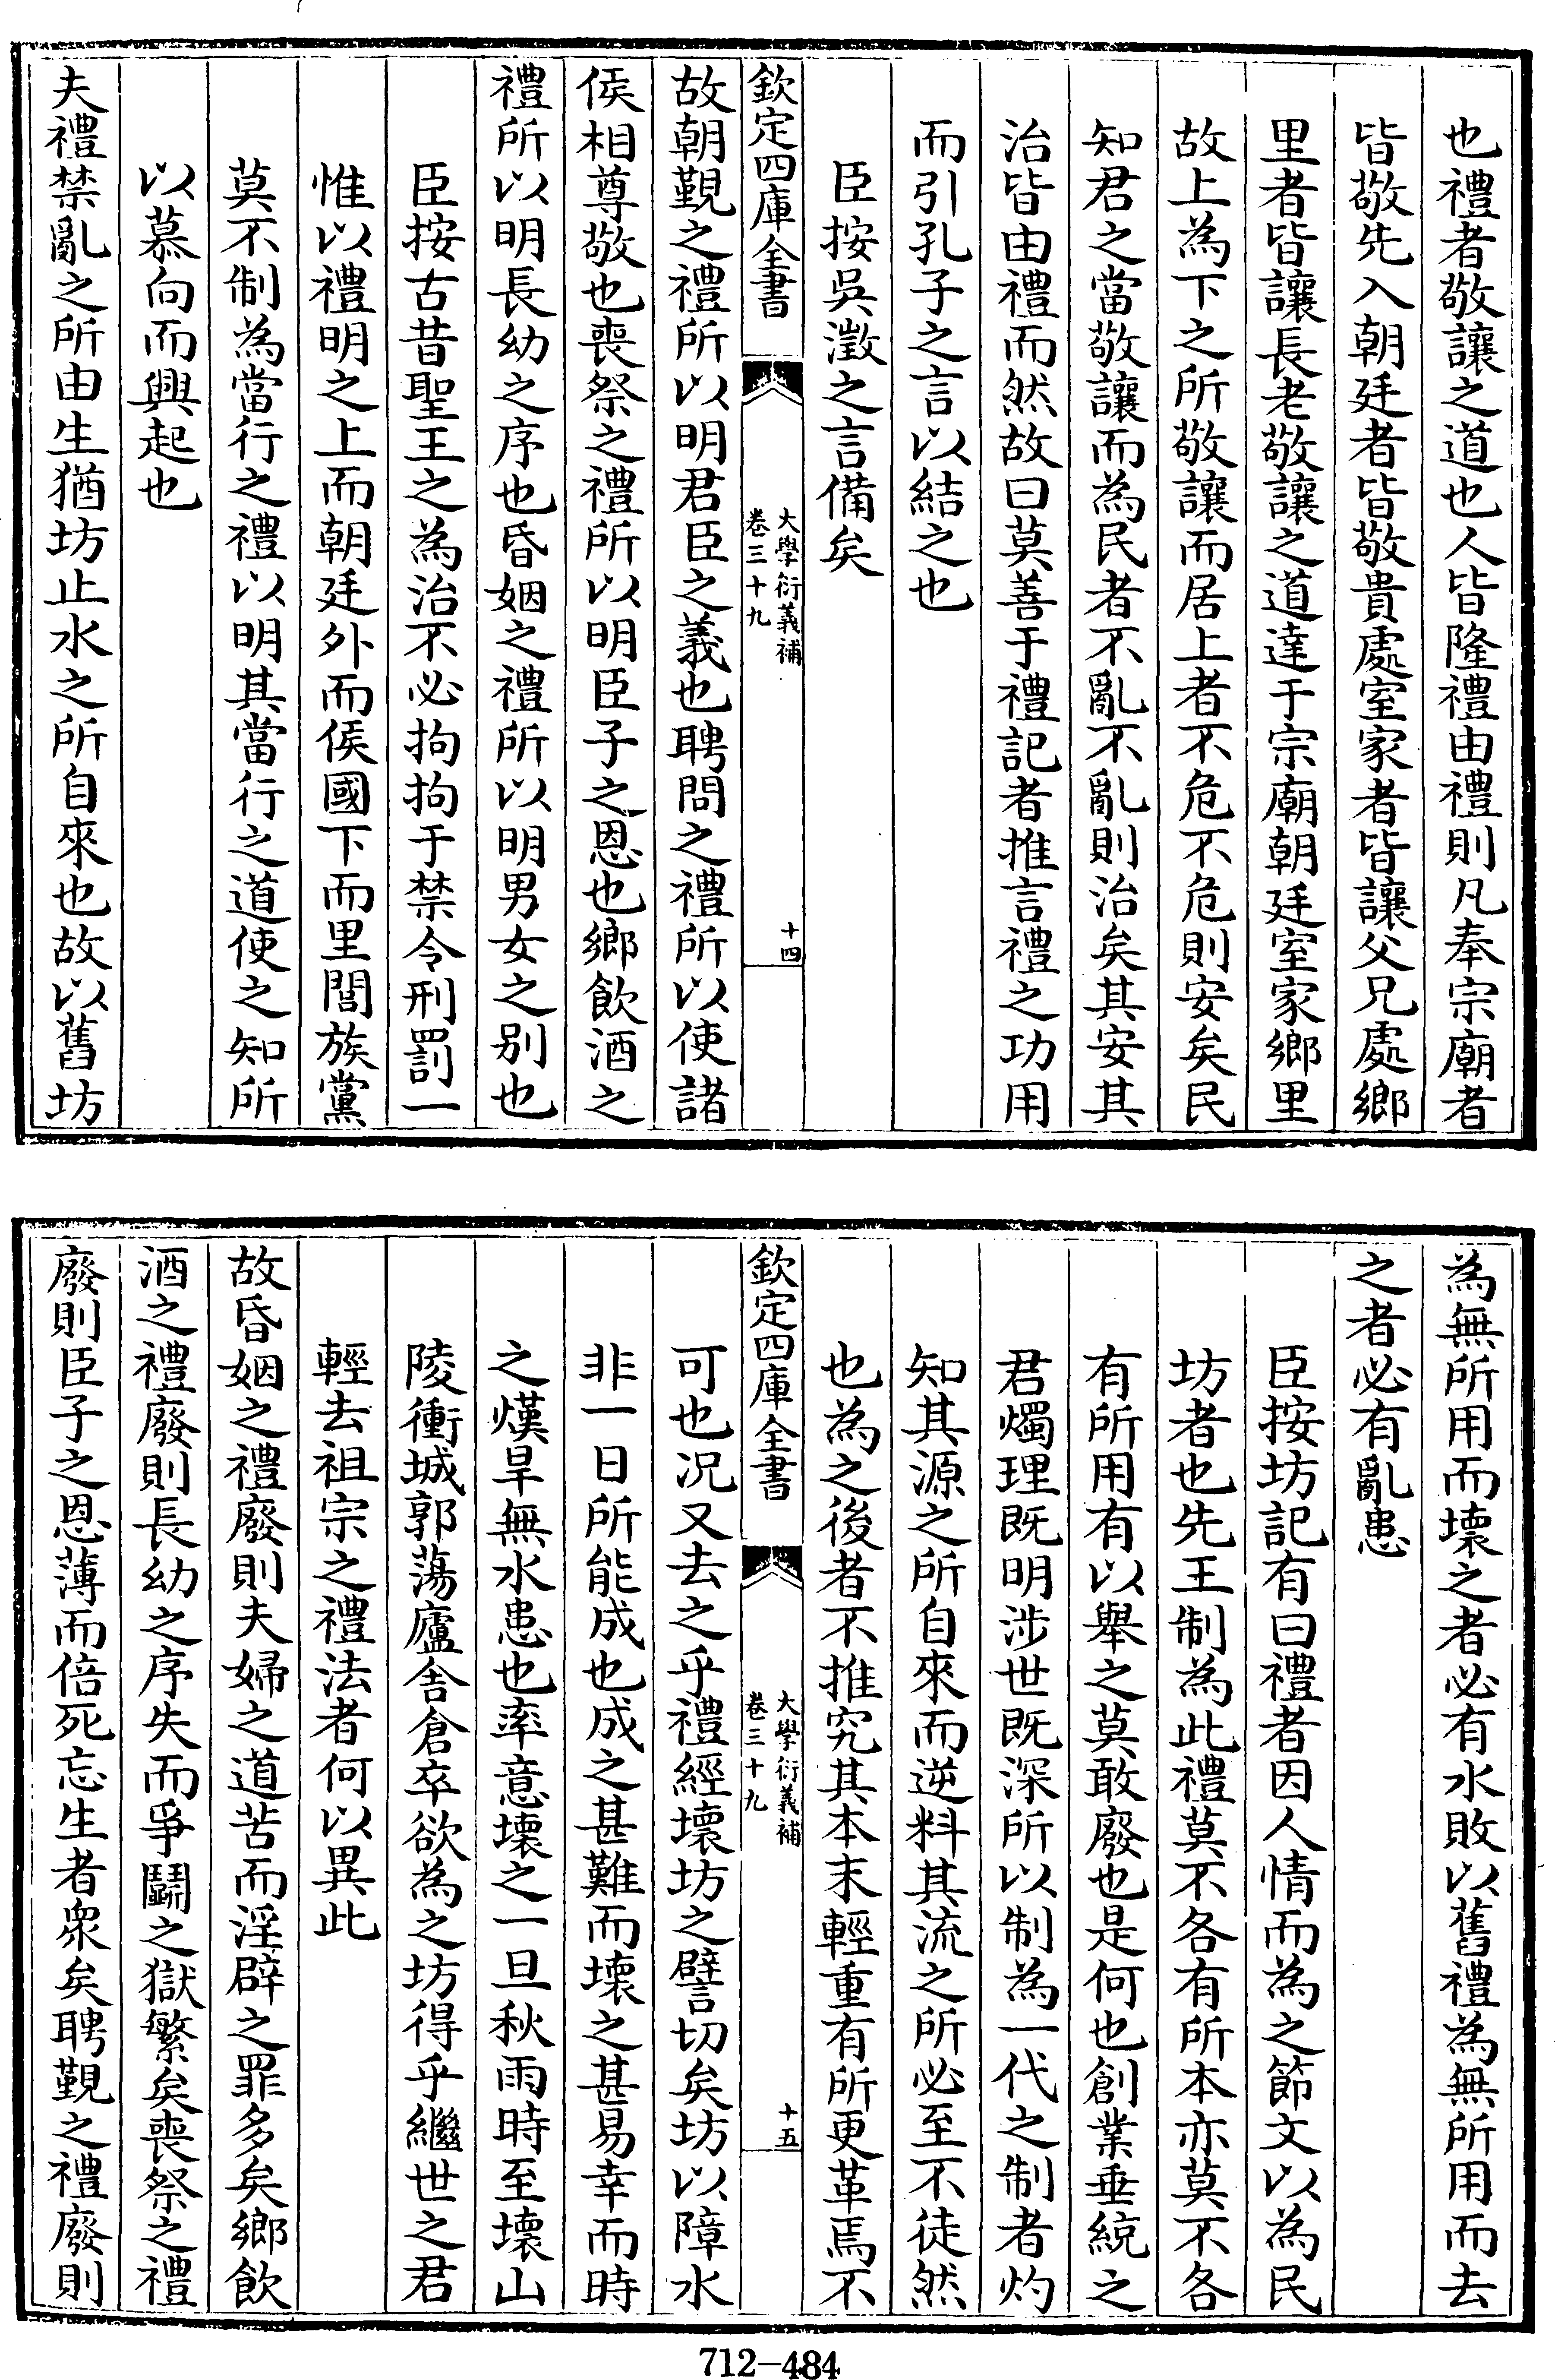 也禮者敬讓之道也人皆隆禮由禮則凡奉宗廟者
皆敬先入朝廷者皆敬貴處室家者皆讓父兄處鄉
里者皆讓長老敬讓之道達于宗廟朝廷室家鄉里
故上為下之所敬讓而居上者不危不危則安矣民
知君之當敬讓而為民者不亂不亂則治矣其安其
治皆由禮而然故曰莫善于禮記者推言禮之功用
而引孔子之言以結之也
臣按吳澂之言備矣
欽定四庫全書
大學衍義補
卷三十九
十四
故朝覲之禮所以明君臣之義也聘問之禮所以使諸
侯相尊敬也喪祭之禮所以明臣子之恩也鄉飲酒之
禮所以明長幼之序也昏姻之禮所以明男女之别也
臣按古昔聖王之為治不必拘拘于禁令刑罰一
惟以禮明之上而朝廷外而侯國下而里閭族黨
莫不制為當行之禮以明其當行之道使之知所
以慕向而興起也
夫禮禁亂之所由生猶坊止水之所自來也故以舊坊
為無所用而壞之者必有水敗以舊禮為無所用而去
之者必有亂患
臣按坊記有曰禮者因人情而為之節文以為民
坊者也先王制為此禮莫不各有所本亦莫不各
有所用有以舉之莫敢廢也是何也創業垂統之
君燭理既明涉世既深所以制為一代之制者灼
知其源之所自來而逆料其流之所必至不徒然
也為之後者不推究其本末輕重有所更革焉不
欽定四庫全書
大學衍義補
卷三十九
十五
可也况又去之乎禮經壞坊之譬切矣坊以障水
非一日所能成也成之甚難而壞之甚易幸而時
之熯旱無水患也率意壞之一旦秋雨時至壞山
陵衝城郭蕩廬舍倉卒欲為之坊得乎繼世之君
輕去祖宗之禮法者何以異此
故昏姻之禮廢則夫婦之道苦而淫辟之罪多矣鄉飲
酒之禮廢則長幼之序失而爭鬭之獄繁矣喪祭之禮
廢則臣子之恩薄而倍死忘生者衆矣聘覲之禮廢則
712-484